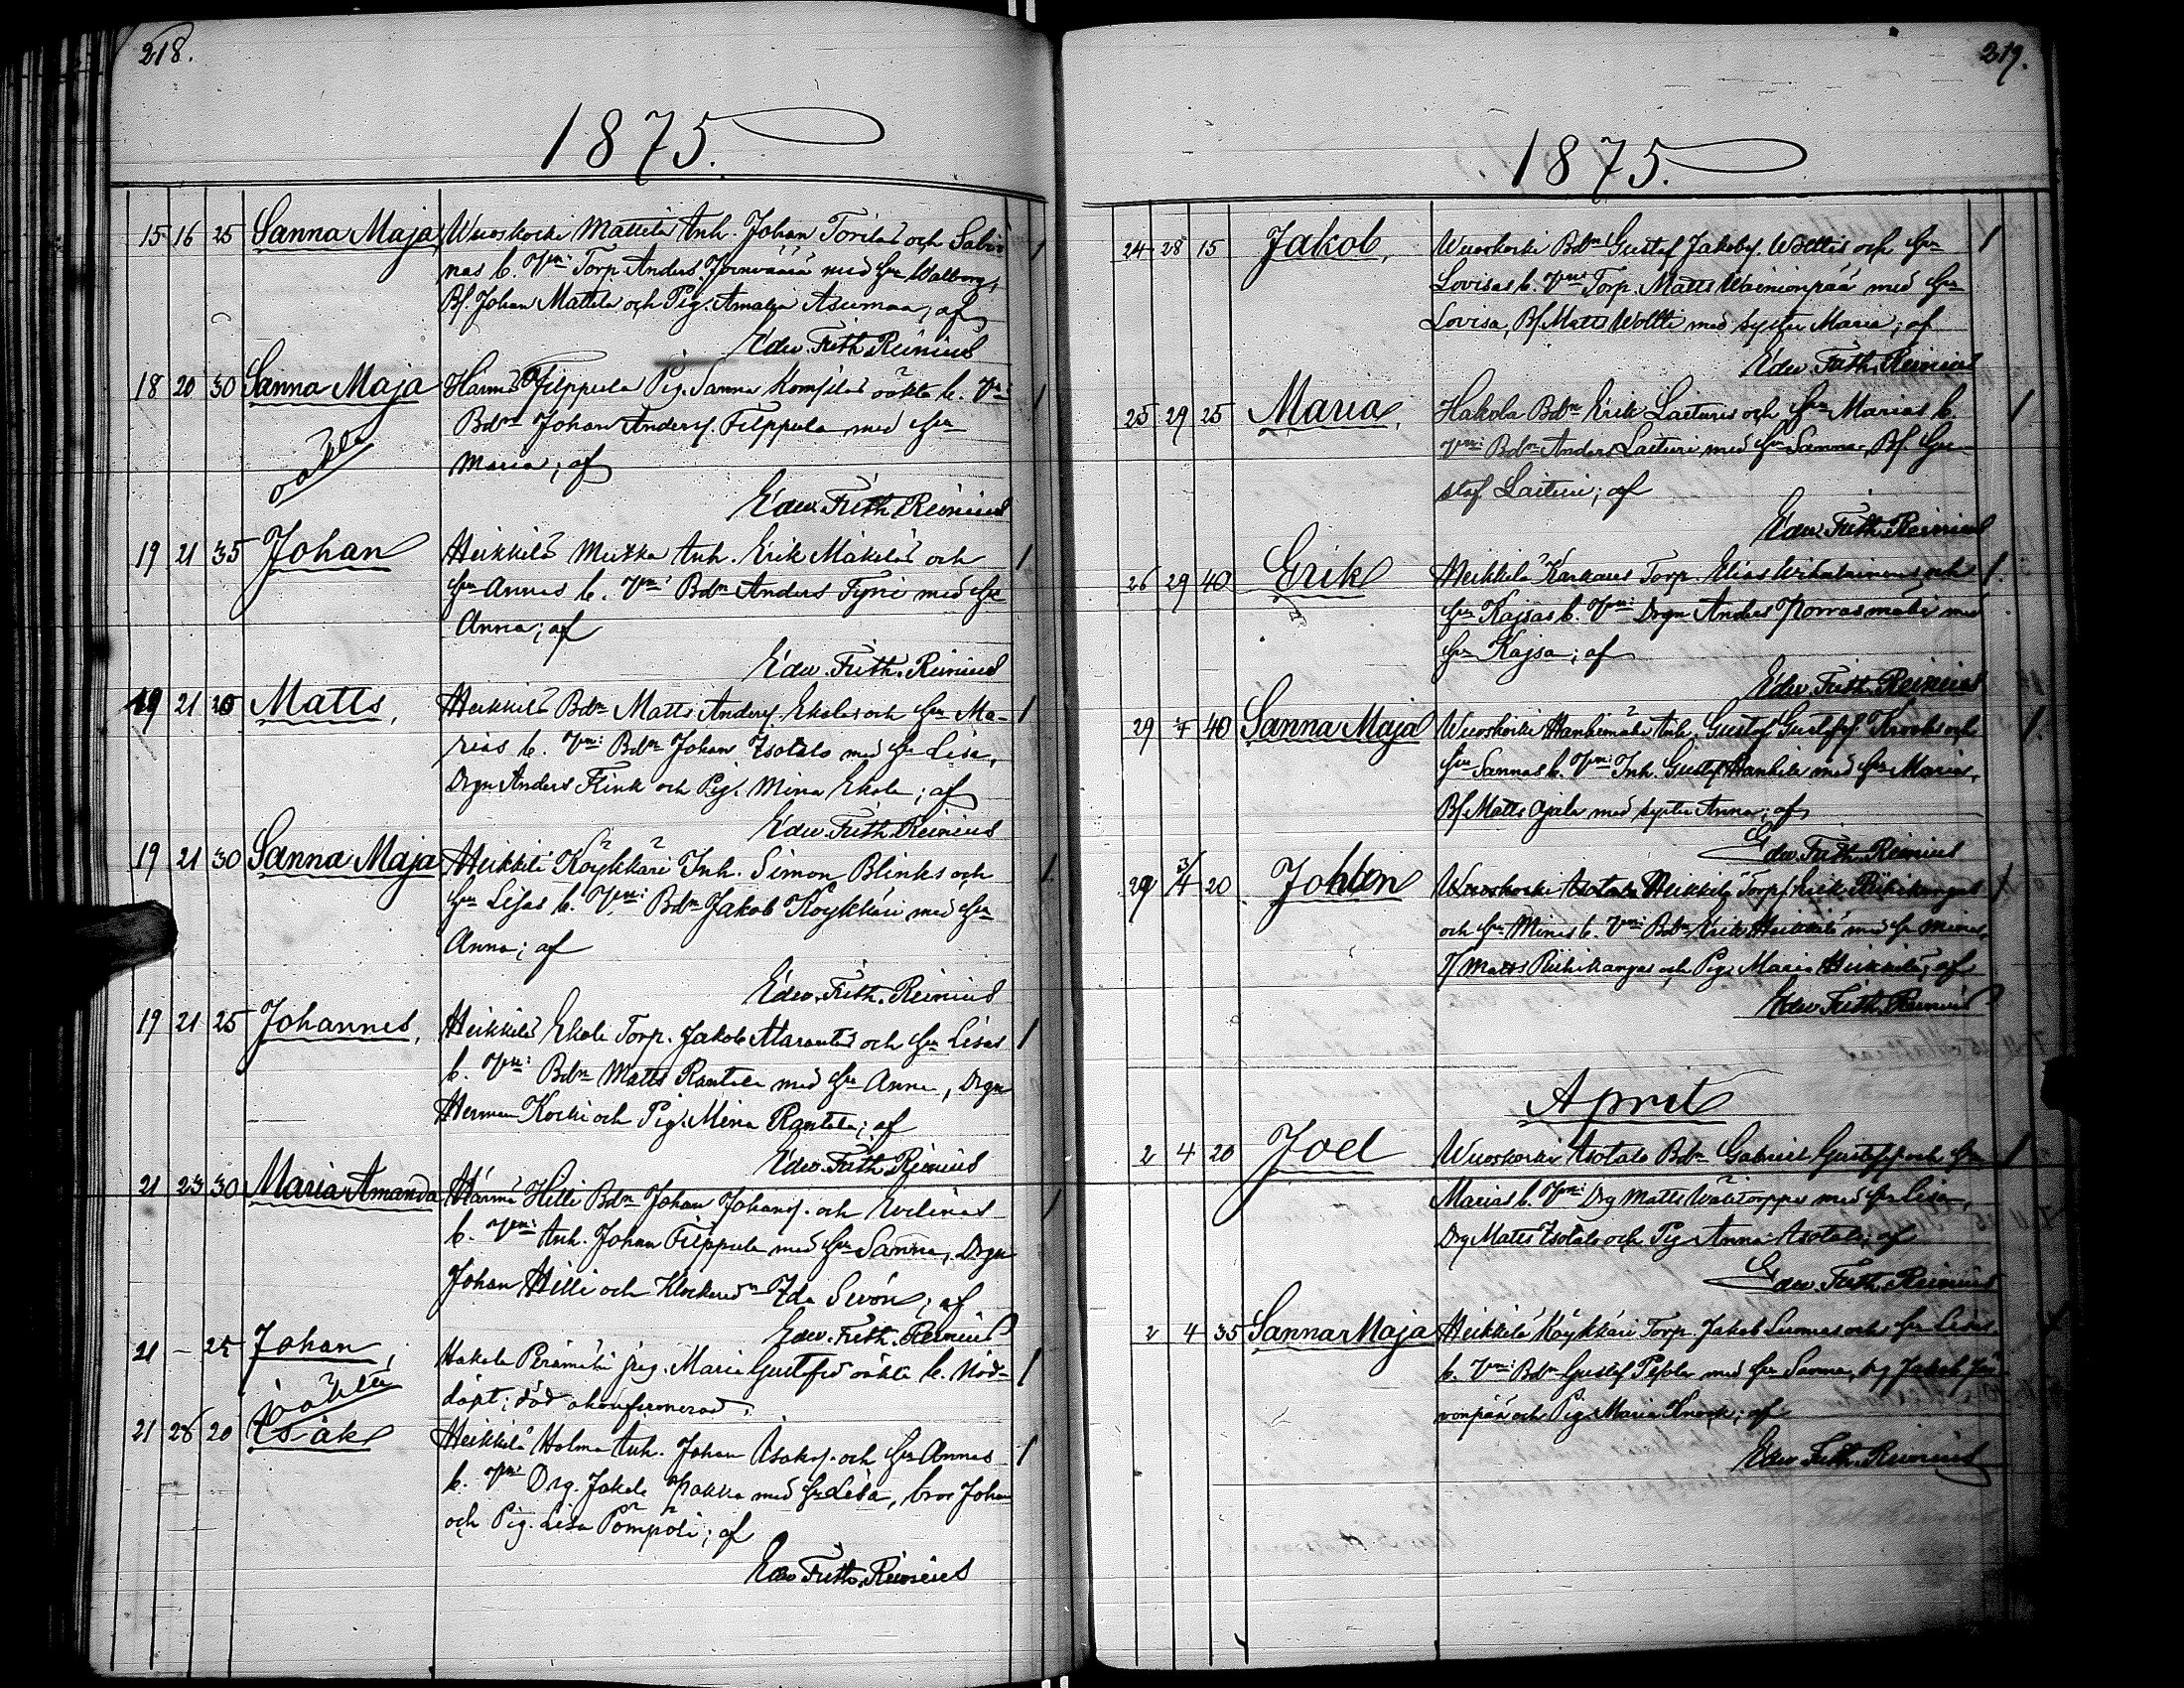 218.
1875.
15 16 25 Sanna Maja, Wuoskoski Mattila Inh. Johan Torilas och Sabi-
nas b. Vni: Torp. Anders med Hu Walborg,
Bs. Johan Mattila och Pig. Amalia Asumaa; af
Edw. Frith. Reinius
18 20 30 Sanna Maja Härmä Filppula Pig. Sanna oäkta b. Vni:
oäkta
Bdn Johan Anders. Filppula med Hu
Maria; af
Edw. Frith. Reinius
19 21 35 Johan Heikkilä Inh. Erik Mäkeläs och
Hu Annas b. Vni: Bdn Anders Fyri med Hu
Anna; af
Edw. Frith. Reinius
19 21 Matts, Heikkilä Bdn Matts Anders. Ekolas och Hu Ma-
rias b. Vni: Bdn Johan Isotalo med Hu Lisa,
Drgn Anders Flink och Pig. Mina Ekola; af
Edw. Frith. Reinius
19 21 30 Sanna Maja Heikkilä Köykkäri Inh. Simon Blinks och
Hu Lisas b. Vni: Bdn Jakob Köykkäri med Hu
Anna; af
Edw. Frith. Reinius
19 21 25 Johannes, Heikkilä Ekola Torp. Jakob och Hu Lisas
b. Vni: Bdn Matts Rantala med Hu Anna, Drgn
Herman Koski och Pig. Mina Rantala; af
Edw. Frith. Reinius
21 23 30 Maria Amanda Härmä Hilli Bdn Johan Johans. och
b. Vni: Inh. Johan Filppula med Hu Sanna, Drgn
Johan Hilli och Ida Sivón; af
Edw. Frith. Reinius
21 – 25 Johan, Hakola Perämäki pig. Maria oäkta b. Nöd-
oäkta
döpt; död okonfirmerad.
21 28 20 Isak Heikkilä Holma Inh. Johan Isaks. och Hu Annas
b. Vni: Drg. Jakob med Hu Lisa, bror Johan
och Pig. Lisa Pompöli; af
Edw. Frith. Reinius
219.
1875.
24 28 15 Jakob, Wuoskoski Bdn Gustaf Jakobs. Wolttis och Hu
Lovisas b. Vni: Torp. Matts Wainionpää med Hu
Lovisa, Bs. Matts Woltti med syster Maria; af
Edw. Frith. Reinius
25 29 25 Maria, Hakola Bdn Erik Laituris och Hu Marias b.
Vni: Bdn Anders Laituri med Hu Sanna, Bs. Gu-
staf Laituri; af
Edw. Frith. Reinius
26 29 40 Erik Heikkilä Karhaus Torp. Elias och
Hu Kajsas b. Vni: Drgn Anders Porrasmäki med
Hu Kajsa; af
Edw. Frith. Reinius
29 40 Sanna Maja Wuoskoski Inh. Gustaf Gustafs. Krooks och
Hu Sannas b. Vni: Inh. Gustaf Hanhila med Hu Maria,
Bs. Matts Ojala med syster Anna; af
Edw. Frith. Reinius
29 3/4 20 Johan Wuoskoski Isotalo Heikkilä Torp. Erik Riihikangas
och Hu Minas b. Vni: Bdn Erik Heikkilä med Hu Mina,
Matts Riihikangas och Pig. Maria Heikkilä; af
Edw. Frith. Reinius
April
2 4 20 Joel Wuoskoski Isotalo Bdn Gabriel Gustafs. och Hu
Marias b. Vni: Drg Matts Wälitorppa med Hu Lisa,
Drg Matts Isotalo och Pig. Anna Isotalo; af
Edw. Frith. Reinius
2 4 35 Sanna Maja Heikkilä Köykkäri Torp. Jakob Luomas och Hu Lisas
b. Vni: Bdn Gustaf Pesola med Hu Sanna, Jakob Jär-
venpää och Pig. Maria Knock; af
Edw. Frith. Reinius